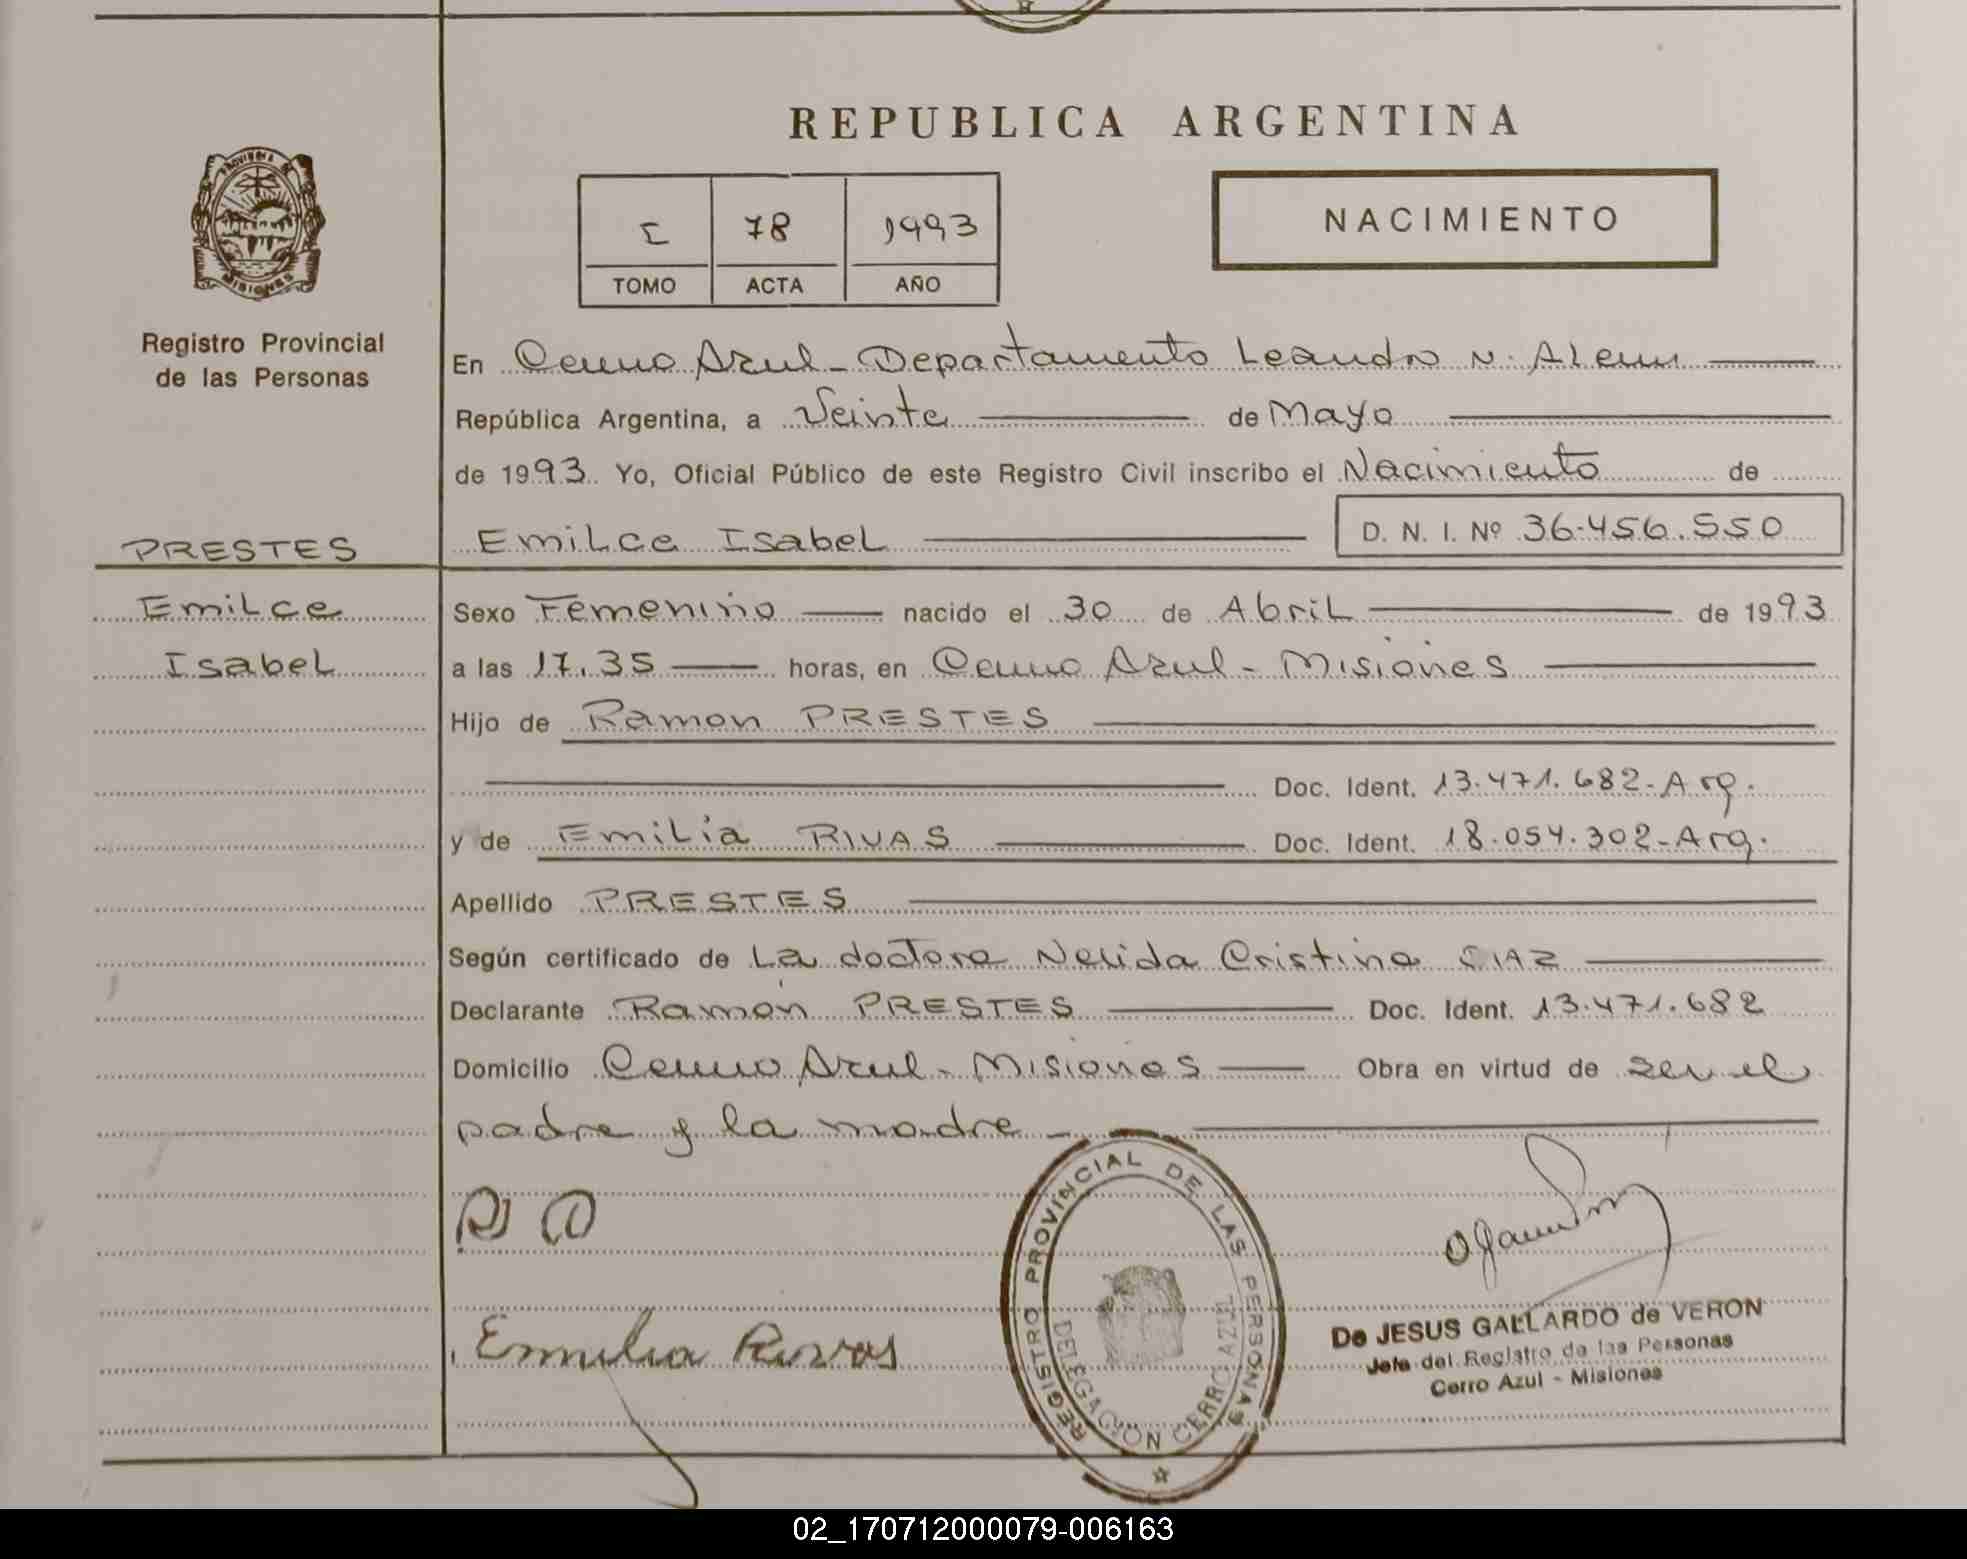 REPUBLICA ARGENTINA
PROVINCIA DE MISIONES
Registro Provincial
de las Personas
I 78 1993
TOMO ACTA AÑO
NACIMIENTO
En Cerro Azul - Departamento Leandro N. Alem
República Argentina, a Veinte de Mayo
de 1993. Yo, Oficial Público de este Registro Civil inscribo el Nacimiento de
PRESTES
Emilce Isabel D. N. I. Nº 36.456.550
Emilce
Isabel
Sexo Femenino nacido el 30 de Abril de 1993
a las 17.35 horas, en Cerro Azul - Misiones
Hijo de Ramon PRESTES
Doc. Ident. 13.471.682 - Arg.
y de Emilia RIVAS Doc. Ident. 18.054.302 - Arg.
Apellido PRESTES
Según certificado de La doctora Nelida Cristina
Declarante Ramón PRESTES Doc. Ident. 13.471.682
Domicilio Cerro Azul - Misiones Obra en virtud de ser el
padre y la madre -
Emilia Rivas
REGISTRO PROVINCIAL DE LAS PERSONAS
DELEGACIÓN CERRO AZUL
De JESUS GALLARDO de VERON
Jefe del Registro de las Personas
Cerro Azul - Misiones
02_170712000079-006163